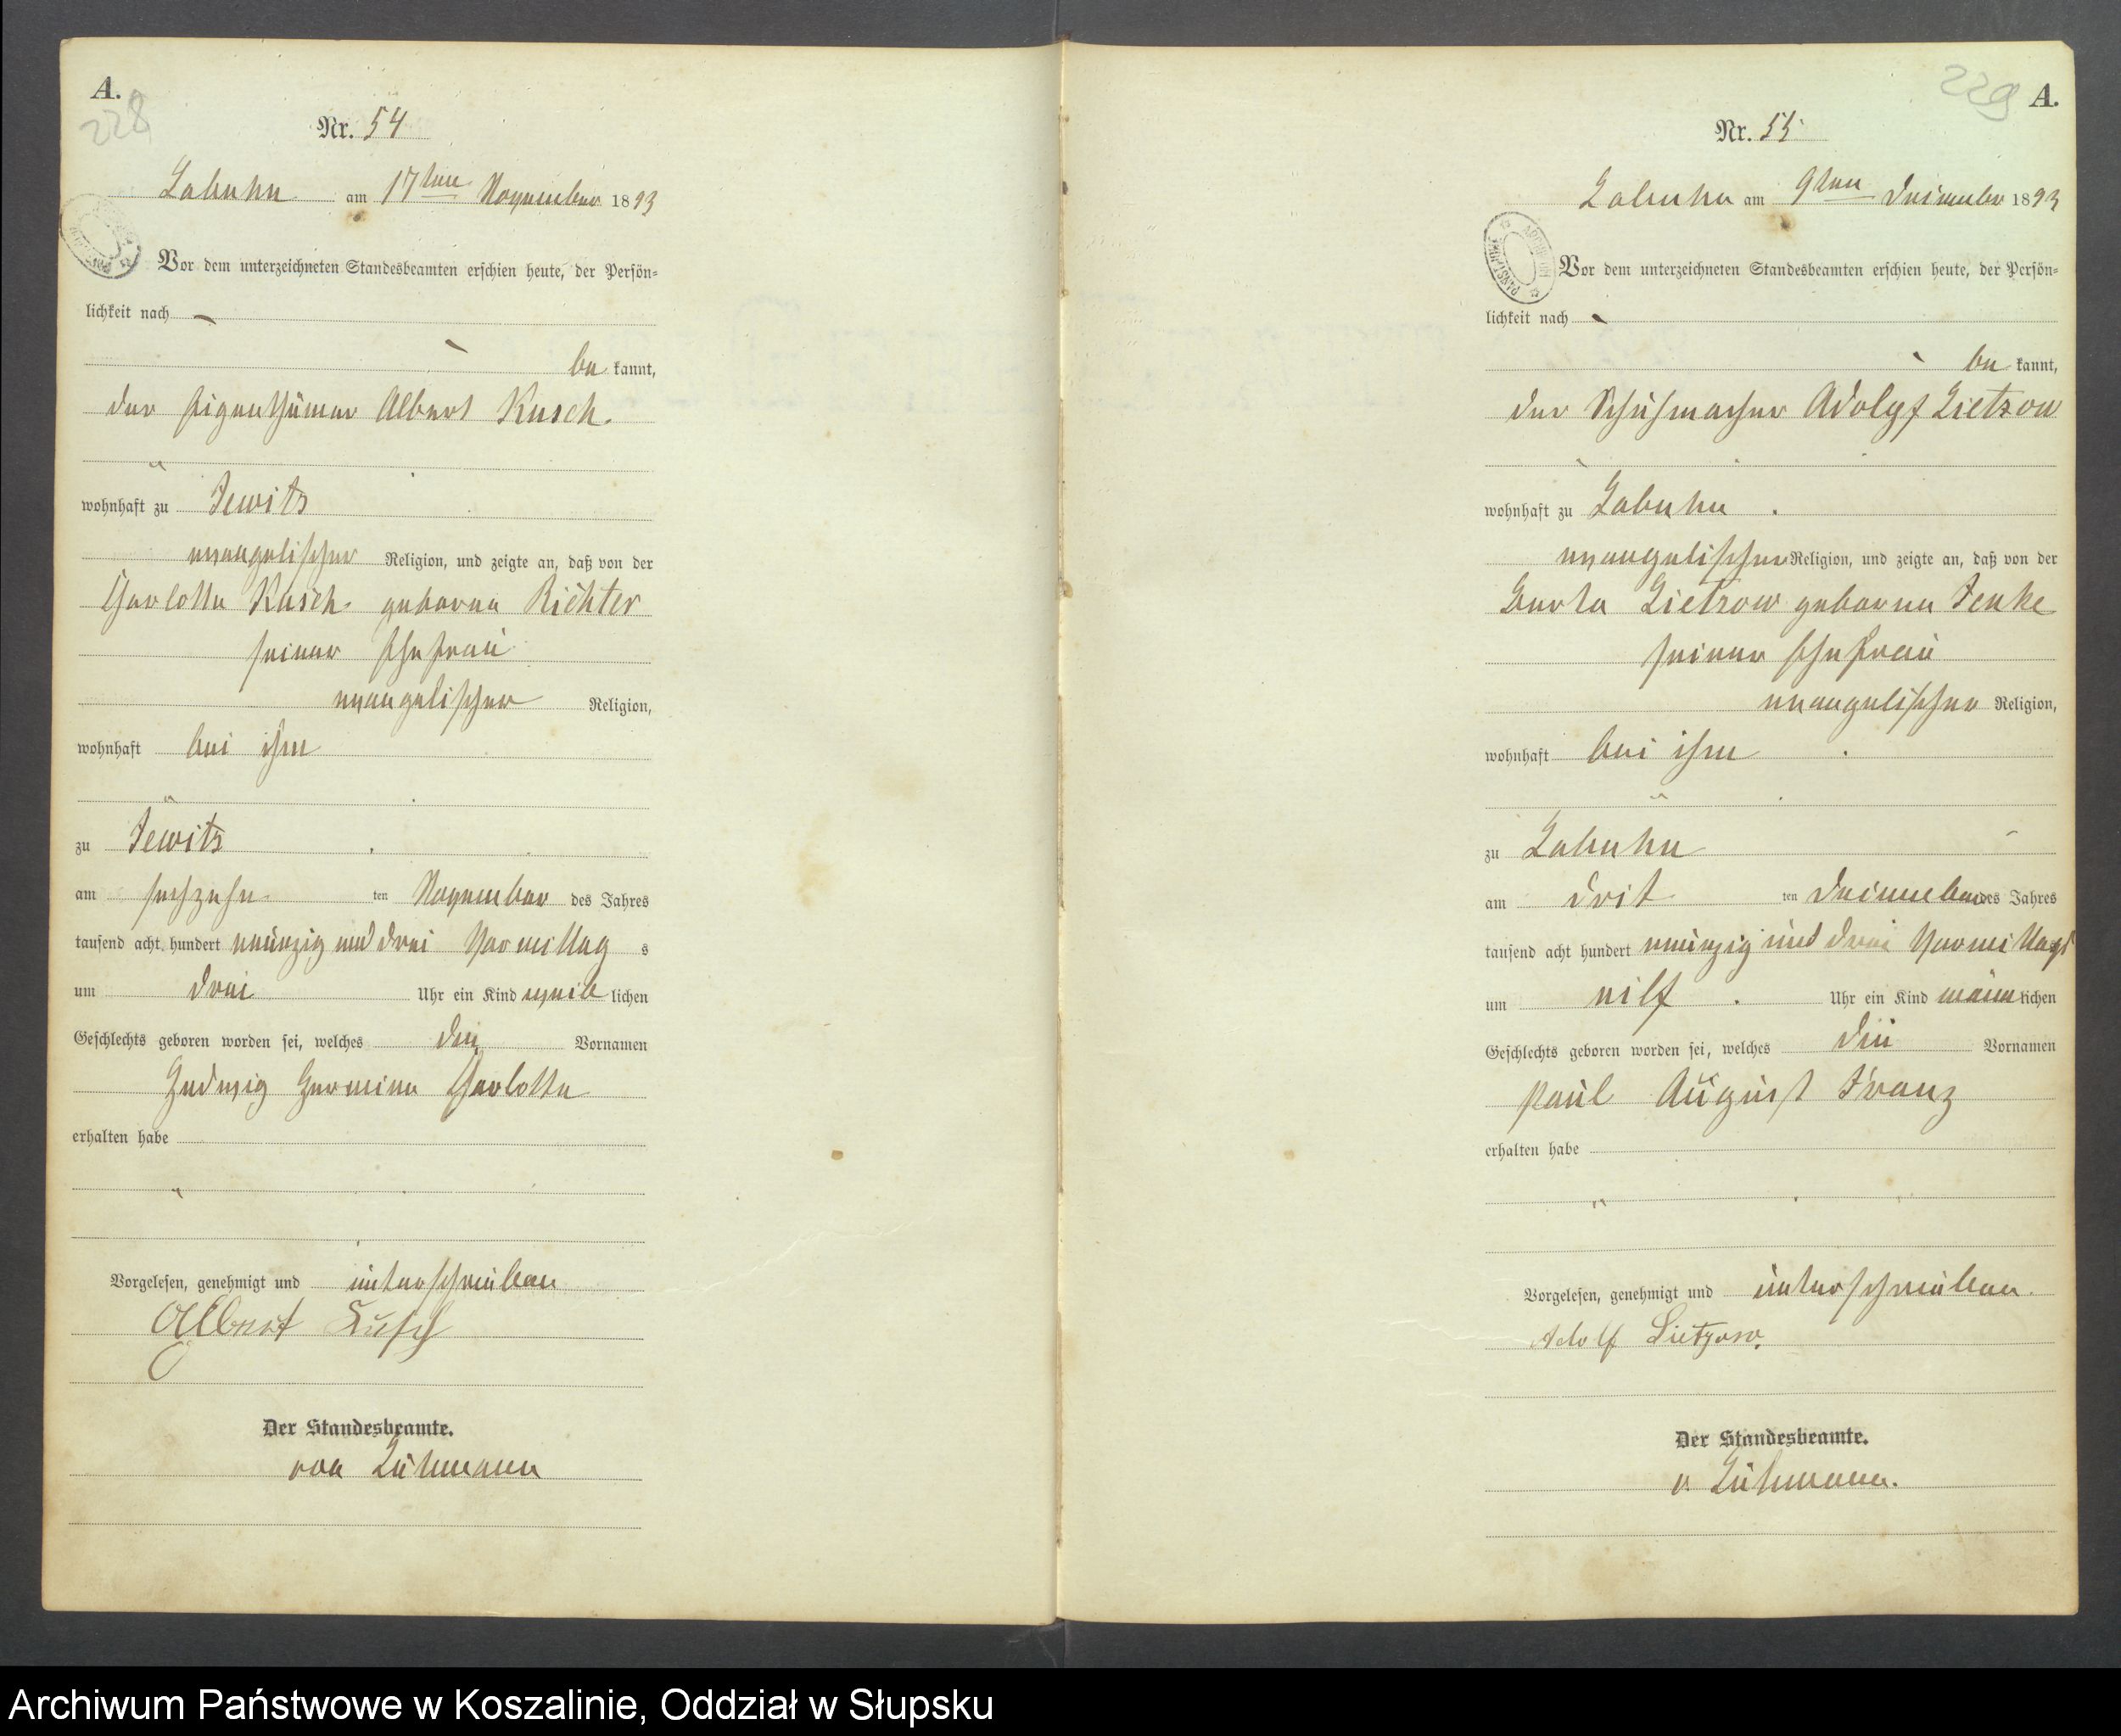 A.
228
Nr. 54
Labuhn am 17ten November 1893
Vor dem unterzeichneten Standesbeamten erschien heute, der Persön=
lichkeit nach
be kannt,
der Eigenthümer Albert Kusch.
wohnhaft zu Jewitz
evangelischer Religion, und zeigte an, daß von der
Charlotte Kusch geborene Richter
seiner Ehefrau
evangelischer Religion,
wohnhaft bei ihm
zu Jewitz
am sechzehn ten November des Jahres
tausend acht hundert neunzig und drei Vormittag s
um drei Uhr ein Kind weib lichen
Geschlechts geboren worden sei, welches den Vornamen
Hedwig Hermine Charlotte
erhalten habe
Vorgelesen, genehmigt und unterschrieben
Albert Kusch
Der Standesbeamte.
von Lühmann
229
A.
Nr. 55
Labuhn am 9ten Dezember 1893
Vor dem unterzeichneten Standesbeamten erschien heute, der Persön=
lichkeit nach
be kannt,
der Schuhmacher Adolf Lietzow
wohnhaft zu Labuhn
evangelischer Religion, und zeigte an, daß von der
Lietzow geborene
seiner Ehefrau
evangelischer Religion,
wohnhaft bei ihm
zu Labuhn
am drit ten Dezember des Jahres
tausend acht hundert neunzig und drei Vormittags
um elf Uhr ein Kind männ lichen
Geschlechts geboren worden sei, welches die Vornamen
Paul August Franz
erhalten habe
Vorgelesen, genehmigt und unterschrieben.
Adolf Lietzow.
Der Standesbeamte.
v. Lühmann.
Archiwum Państwowe w Koszalinie, Oddział w Słupsku